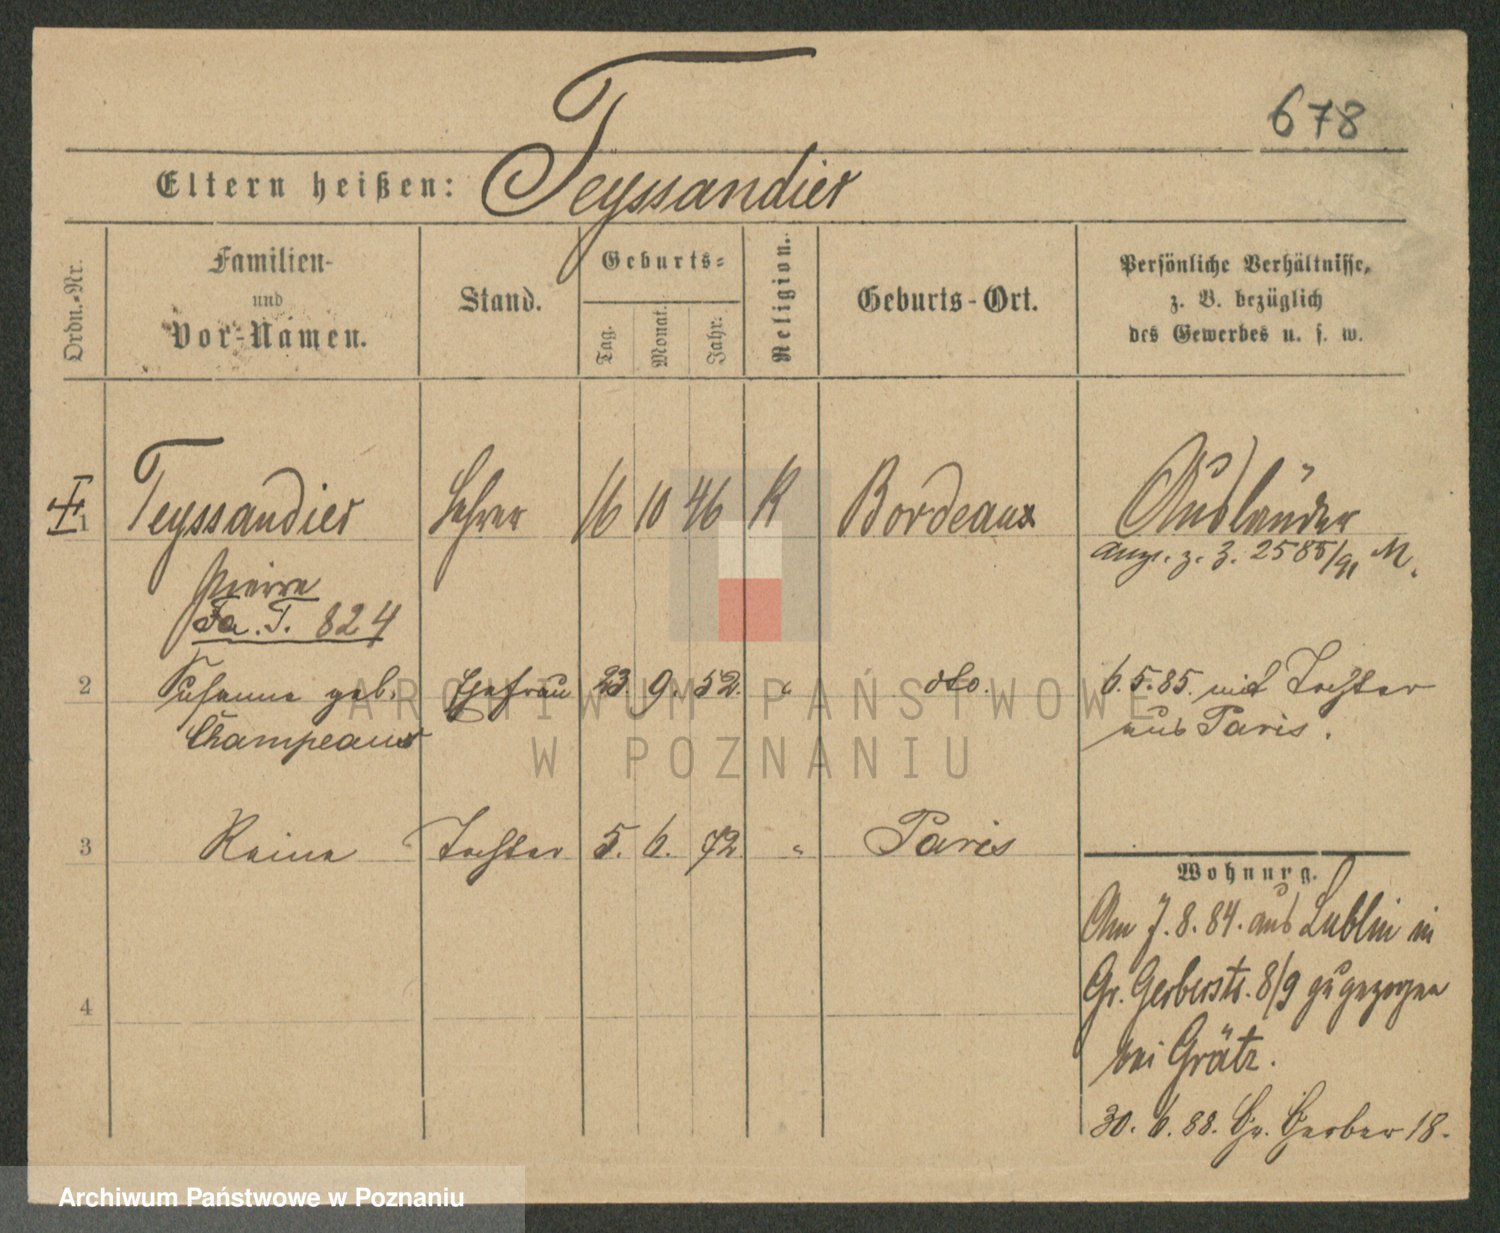 678
Eltern heißen: Teyssandier
Ordn.-Nr.
Familien-
und
Vor-Namen.
Stand.
Geburts-
Tag.
Monat.
Jahr.
Religion.
Geburts-Ort.
Persönliche Verhältnisse,
z. B. bezüglich
des Gewerbes u. s. w.
1 Teyssandier Lehrer 16 10 46 K Bordeaux Ausländer
Pierre
Fa. T. 824
z. 3. 2585/91 M.
2 Susanne geb. Ehefrau 23. 9. 52. " dto. 6.5.85. mit Tochter
Champeaux
aus Paris.
3 Reine Tochter 5. 6. 72 " Paris
Wohnung.
Am 7. 8. 84. aus Lublin in
Gr. Gerberstr. 8/9 zugezogen
bei Grätz.
4
30. 6. 88. Gr. Gerber 18.
ARCHIWUM PAŃSTWOWE
W POZNANIU
Archiwum Państwowe w Poznaniu